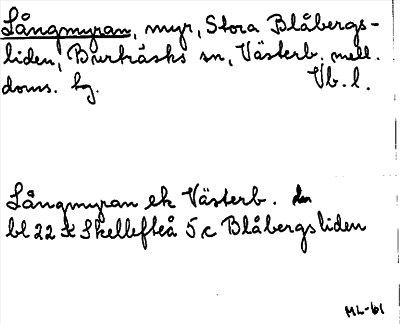 Långmyran, myr, Stora Blåbergs-
liden, Burträsks sn, Västerb. mell.
doms. hg.
Vb. l.
Långmyran ek Västerb.
bl 22 Skellefteå 5c Blåbergsliden
ML-61